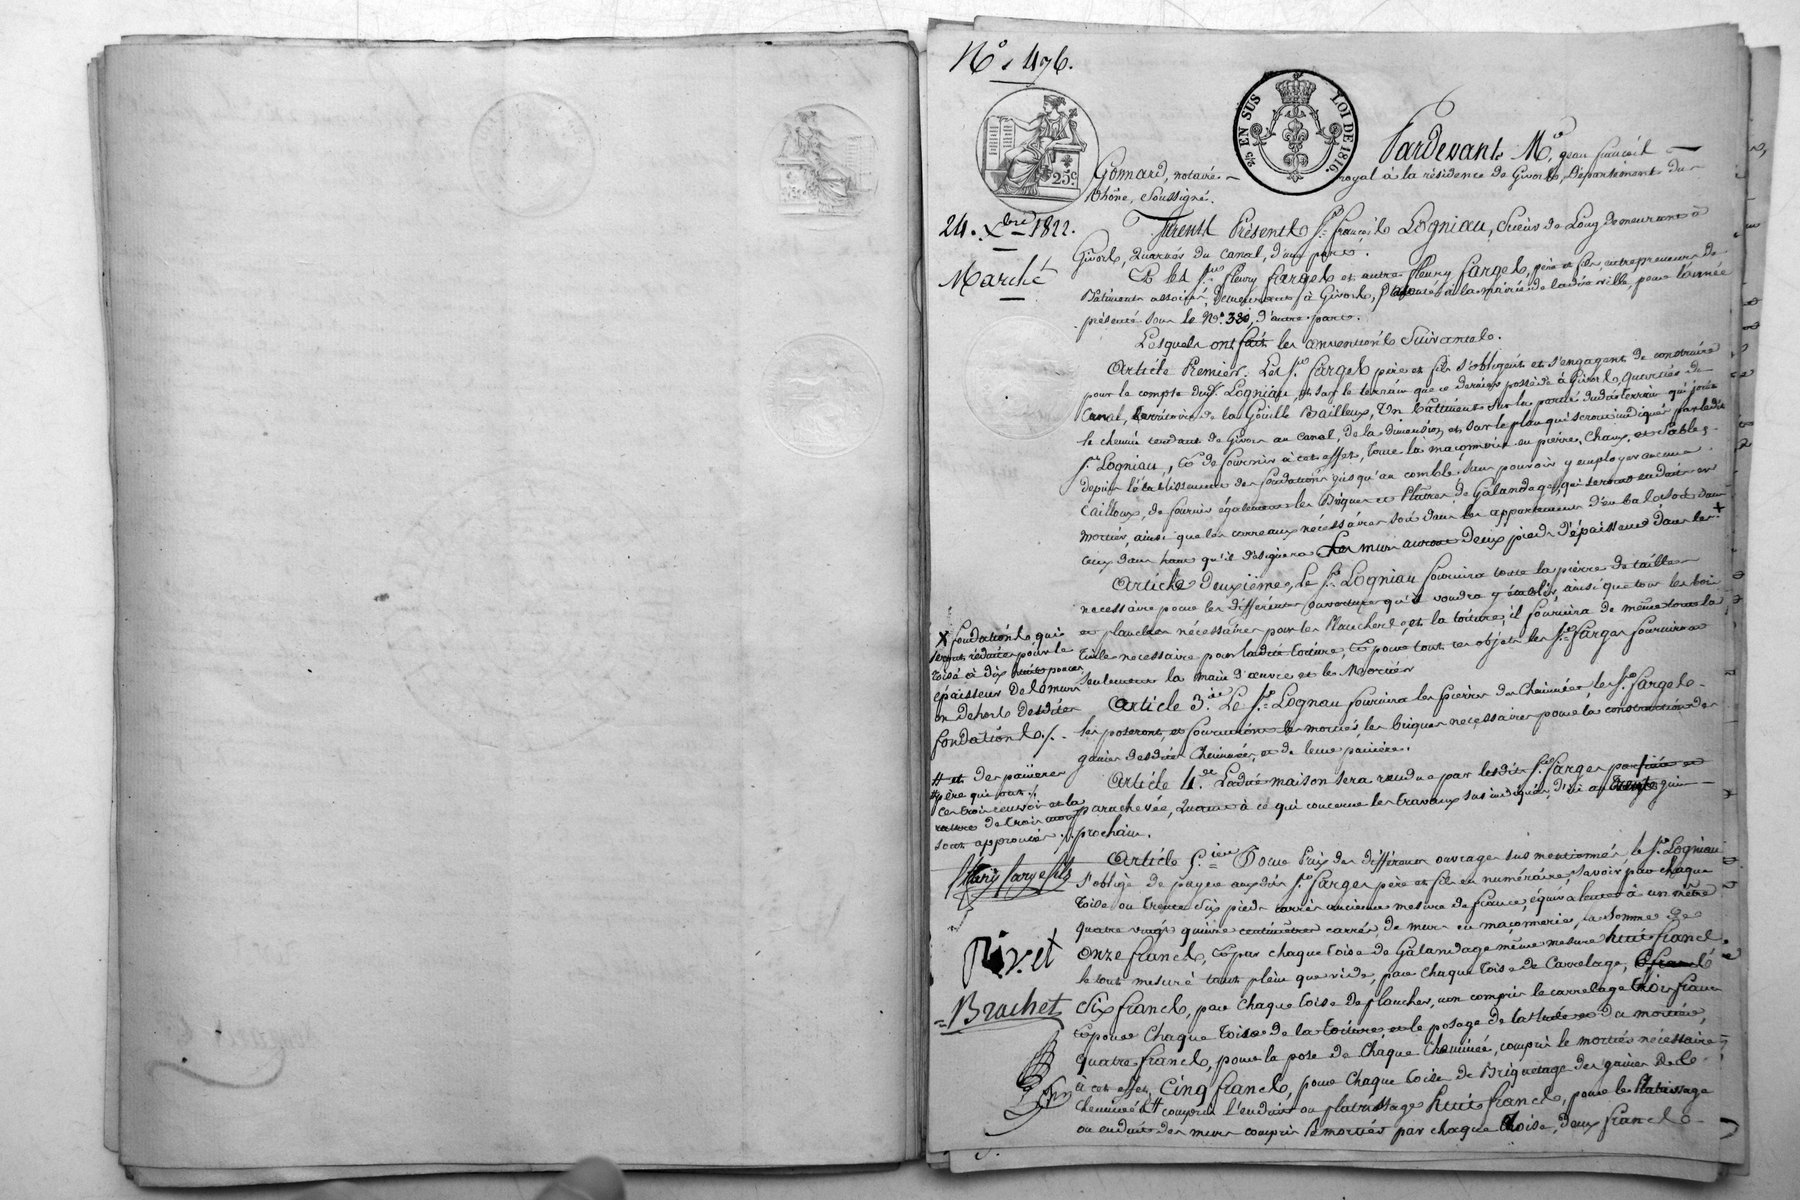 N.º 476.
25.c
2/5 EN SUS LOI DE 1816.
Pardevant M.e Jean François
Gomard, notaire royal à la résidence de Givors, Département du
Rhône, Soussigné.
24. Xbre 1822.
Marché
Furent Présents S.r François Logniau, Scieur de Long demeurant à
Givors, Quartier du Canal, d'une part.
Et les S.rs fleury farges et autre fleury fargel, père et fils, entrepreneurs de
Bâtiment associés, demeurant à Givors, patentés à la mairie de ladite ville, pour l'année
présente sous le N.º 330, d'autre part.
Lesquels ont fait les conventions Suivantes.
Article Premier. Les S.rs fargel père et fils s'obligent et s'engagent de construire
pour le compte du S.r Logniau, et sur le terrain que ce dernier possède à Givors, quartier du
Canal, territoire de la Gouille Bailloux, Un Bâtiment sur la partie dudit terrain qui joint
le chemin tendant de Givors au Canal, de la dimension et sur le plan qui seront indiqués par ledit
S.r Logniau, et de fournir à cet effet, toute la maçonnerie en pierre, Chaux, et Sable,
depuis l'établissement des fondations jusqu'au comble, sans pouvoir y employer aucuns
Cailloux, de fournir également les Briques et Platres de Galandages, qui seront enduits en
mortier, ainsi que les carreaux nécessaires soit dans les appartements d'en bas soit dans
ceux d'en haut qu'il désignera Les murs auront deux pieds d'épaisseur dans les +
Article deuxième, Le S.r Logniau fournira toute la pierre de taille
necessaire pour les différentes ouvertures qu'il voudra y établir, ainsi que tous les bois
et planches nécessaires pour les Planchers, et la toiture, il fournira de même tous la
tuile necessaire pour ladite toiture, et pour tout ces objets les S.rs Farges fourniront
seulement la main d'œuvre et le Mortier
X fondations qui
seront réduites pour le
toisé à dix huit pouces
épaisseur de la mure
en dehors desdites
fondations ./.
Article 3.ie Le S.r Lognau fournira les pierres des Cheminées, les S.rs Fargel
les poseront, et fourniront les mortiers, les briques necessaires pour la construction des
gaines desdites Cheminées, et de leur panière.
Article 4.de Ladite maison sera rendue par lesdits S.rs Farges parfaite et
parachevée, Quant à ce qui concerne les travaux sus indiqués, d'ici au vingt juin
prochain.
sont approuvés ./.
Article 5.ieme Pour Prix des différens ouvrages sus mentionnés, le S.r Logniau
s'oblige de payer auxdits S.rs Farges père et fils en numéraire, Savoir, par chaque
toise ou trente six pieds carrés ancienne mesure de france, équivalente à un mètre
quatre vingt quinze centimètres carrés, de murs en maçonnerie, la somme de
Onze francs, et par chaque toise de Galandage même mesure huit francs
le tout mesuré tant plein que vide, pour Chaque toise de Carrelage,
Six francs, pour Chaque toise de plancher, non compris le carrelage trois francs
et pour Chaque toise de la toiture et le posage de la tuile et du mortier,
quatre francs, pour la pose de Chaque Cheminée, compris le mortier nécessaire
à cet effet, Cinq francs, pour Chaque toise de Briquetage des gaines de le
Cheminées # compris l'enduit ou platrassage huit francs, pour le Platrissage
ou enduit des murs compris le mortier par chaque toise, deux francs
Rivet
Brachet